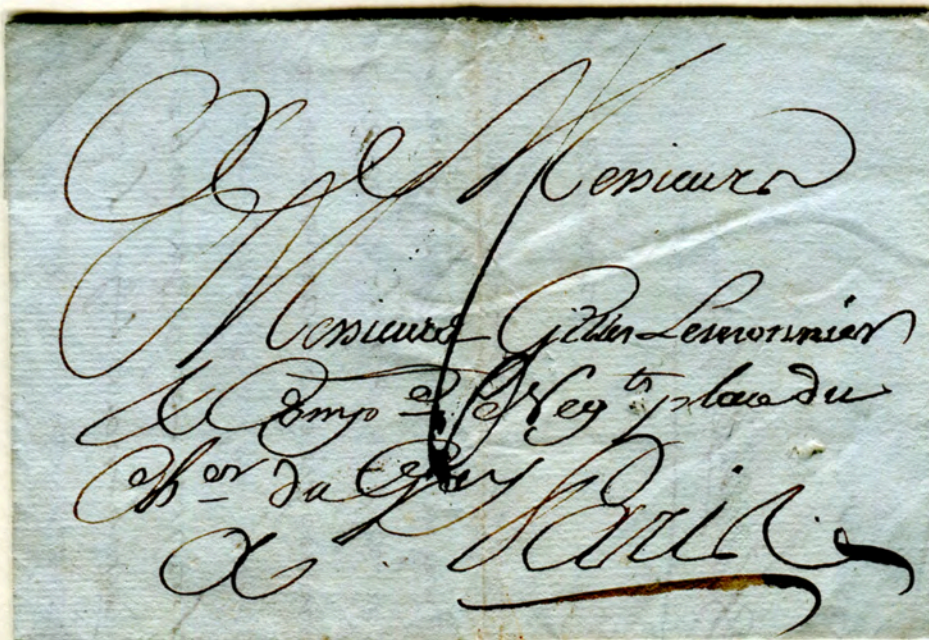 A Messieurs
Messieurs Lemonnier
& Comp.e Neg.ts place du
Cher du Guet
A Paris